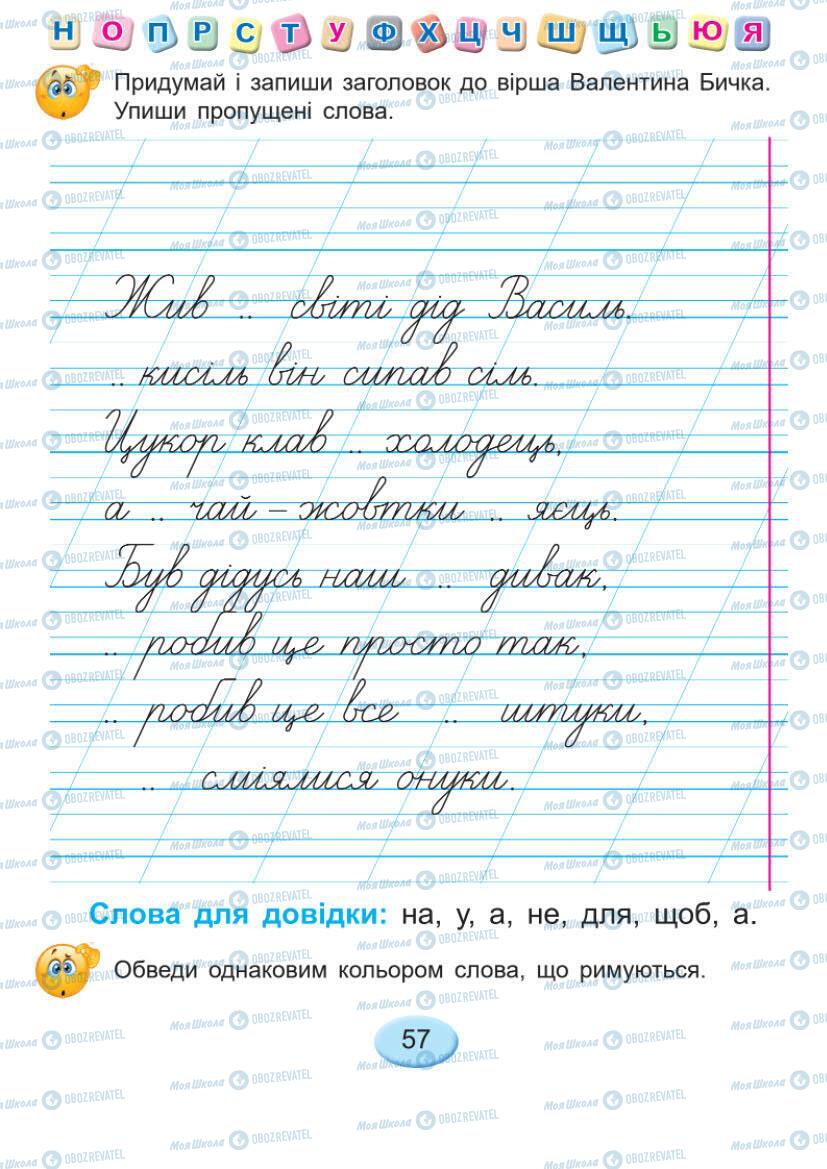 Н О П Р С Т У Ф Х Ц Ч Ш Щ Ь Ю Я
Придумай і запиши заголовок до вірша Валентина Бичка.
Упиши пропущені слова.
Жив .. світі дід Василь.
.. кисіль він сипав сіль.
Цукор клав .. холодець,
а .. чай – жовтки .. яєць.
Був дідусь наш .. дивак,
.. робив це просто так,
.. робив це все .. штуки,
.. сміялися онуки.
Слова для довідки: на, у, а, не, для, щоб, а.
Обведи однаковим кольором слова, що римуються.
57
МояШкола OBOZREVATEL